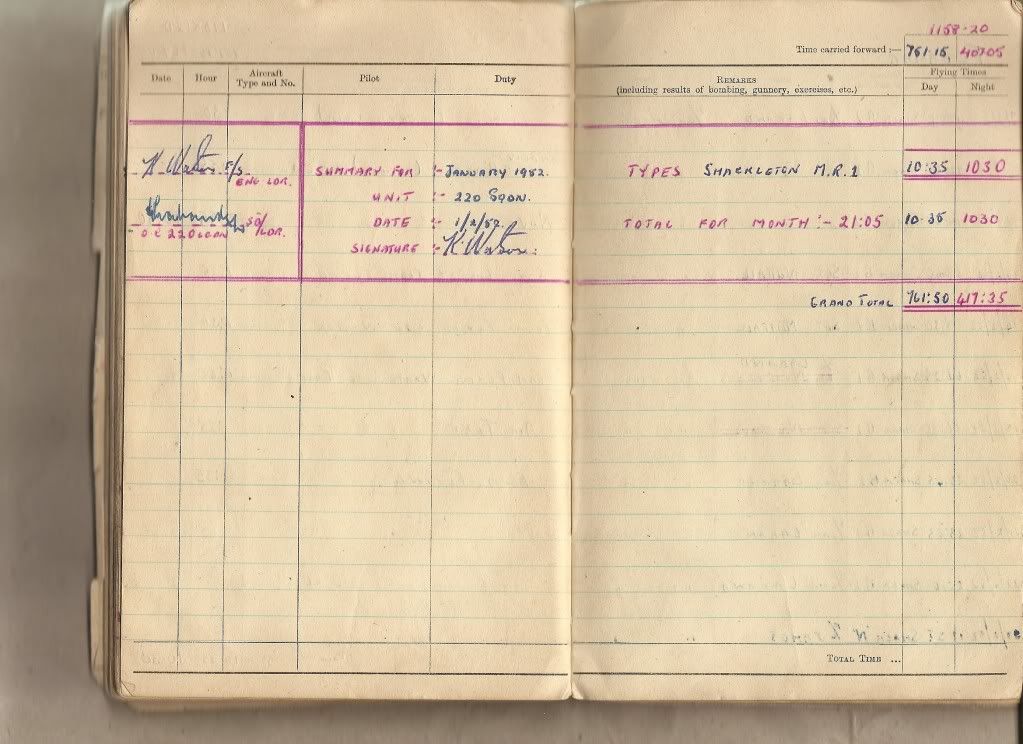 Date Hour Aircraft Type and No. Pilot Duty
K Watson F/S
ENG LDR.
SUMMARY FOR :- JANUARY 1952.
UNIT :- 220 SQDN.
S/LDR.
O C 220 SQDN
DATE :- 1/2/52.
SIGNATURE :- K Watson:
1158·20
Time carried forward :— 751·15, 407·05
REMARKS
(including results of bombing, gunnery, exercises, etc.)
Flying Times
Day Night
TYPES SHACKLETON M.R.1 10:35 1030
TOTAL FOR MONTH :- 21:05 10·35 1030
GRAND TOTAL 761:50 417:35
TOTAL TIME ...